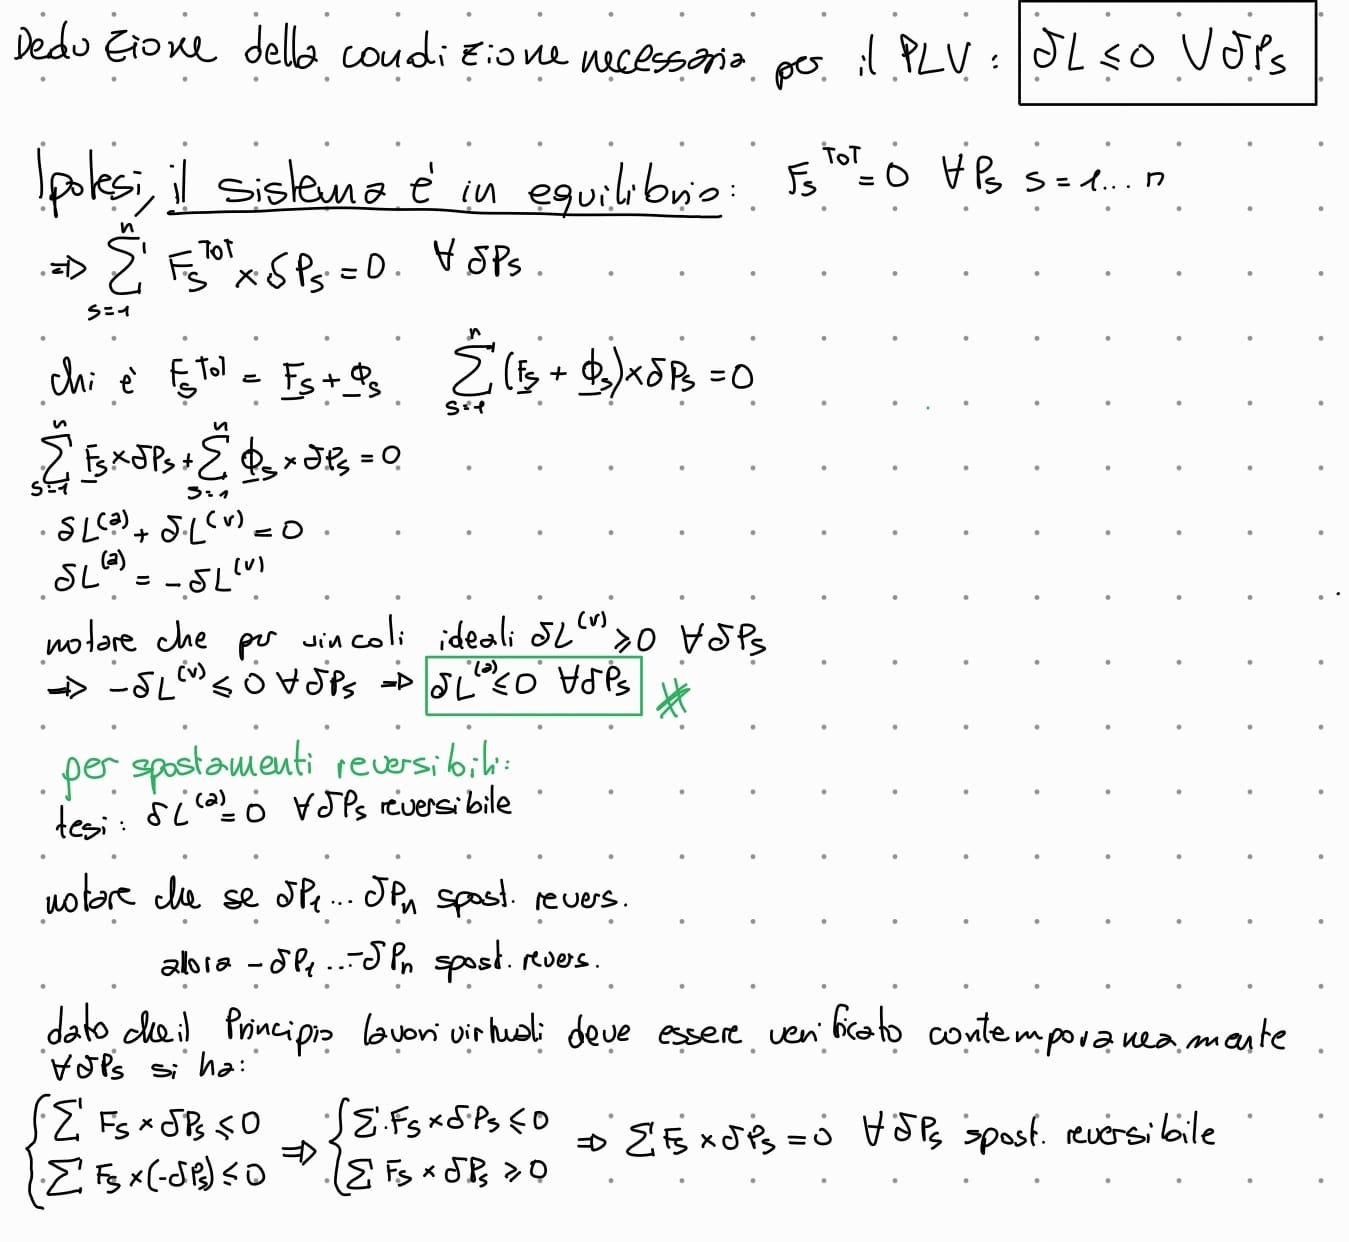 Deduzione della condizione necessaria per il PLV: δL ≤ 0 ∀δPs
Ipotesi, il sistema è in equilibrio: Fs^TOT = 0 ∀Ps s=1...n
⇒ Σ_{s=1}^{n} Fs^TOT × δPs = 0 ∀δPs
chi è Fs^Tot = Fs + Φs Σ_{s=1}^{n} (Fs + Φs) × δPs = 0
Σ_{s=1}^{n} Fs × δPs + Σ_{s=1}^{n} Φs × δPs = 0
δL^(a) + δL^(v) = 0
δL^(a) = -δL^(v)
notare che per vincoli ideali δL^(v) ≥ 0 ∀δPs
⇒ -δL^(v) ≤ 0 ∀δPs ⇒ δL^(a) ≤ 0 ∀δPs
per spostamenti reversibili:
tesi: δL^(a) = 0 ∀δPs reversibile
notare che se δP1 ... δPn spost. revers.
allora -δP1 ... -δPn spost. revers.
dato che il Principio lavori virtuali deve essere verificato contemporaneamente
∀δPs si ha:
{ Σ Fs × δPs ≤ 0 ⇒ { Σ Fs × δPs ≤ 0 ⇒ Σ Fs × δPs = 0 ∀δPs spost. reversibile
{ Σ Fs × (-δPs) ≤ 0 { Σ Fs × δPs ≥ 0